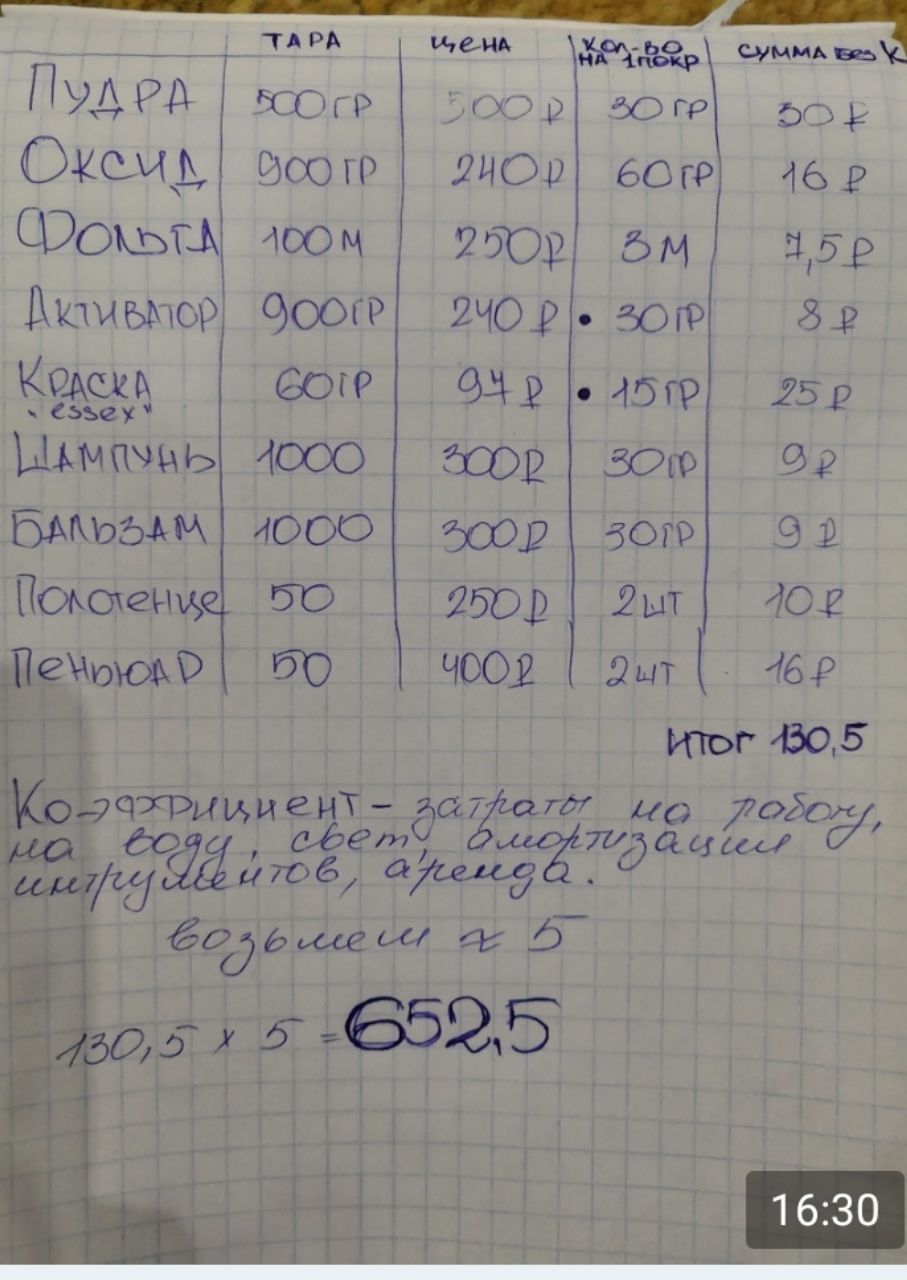 ТАРА ЦЕНА КОЛ-ВО НА 1ПОКР СУММА БЕЗ К
ПУДРА 500ГР 500₽ 30ГР 30₽
ОКСИД 900ГР 240₽ 60ГР 16₽
ФОЛЬГА 100М 250₽ 3М 7,5₽
АКТИВАТОР 900ГР 240₽ • 30ГР 8₽
КРАСКА "essex" 60ГР 97₽ • 15ГР 25₽
ШАМПУНЬ 1000 300₽ 30ГР 9₽
БАЛЬЗАМ 1000 300₽ 30ГР 9₽
ПОЛОТЕНЦЕ 50 250₽ 2шт 10₽
ПЕНЬЮАР 50 400₽ 2шт 16₽
ИТОГ 130,5
Коэффициент - затраты на работу,
на воду, свет, амортизация
интрументов, аренда.
возьмем ≈ 5
130,5 × 5 = 652,5
16:30